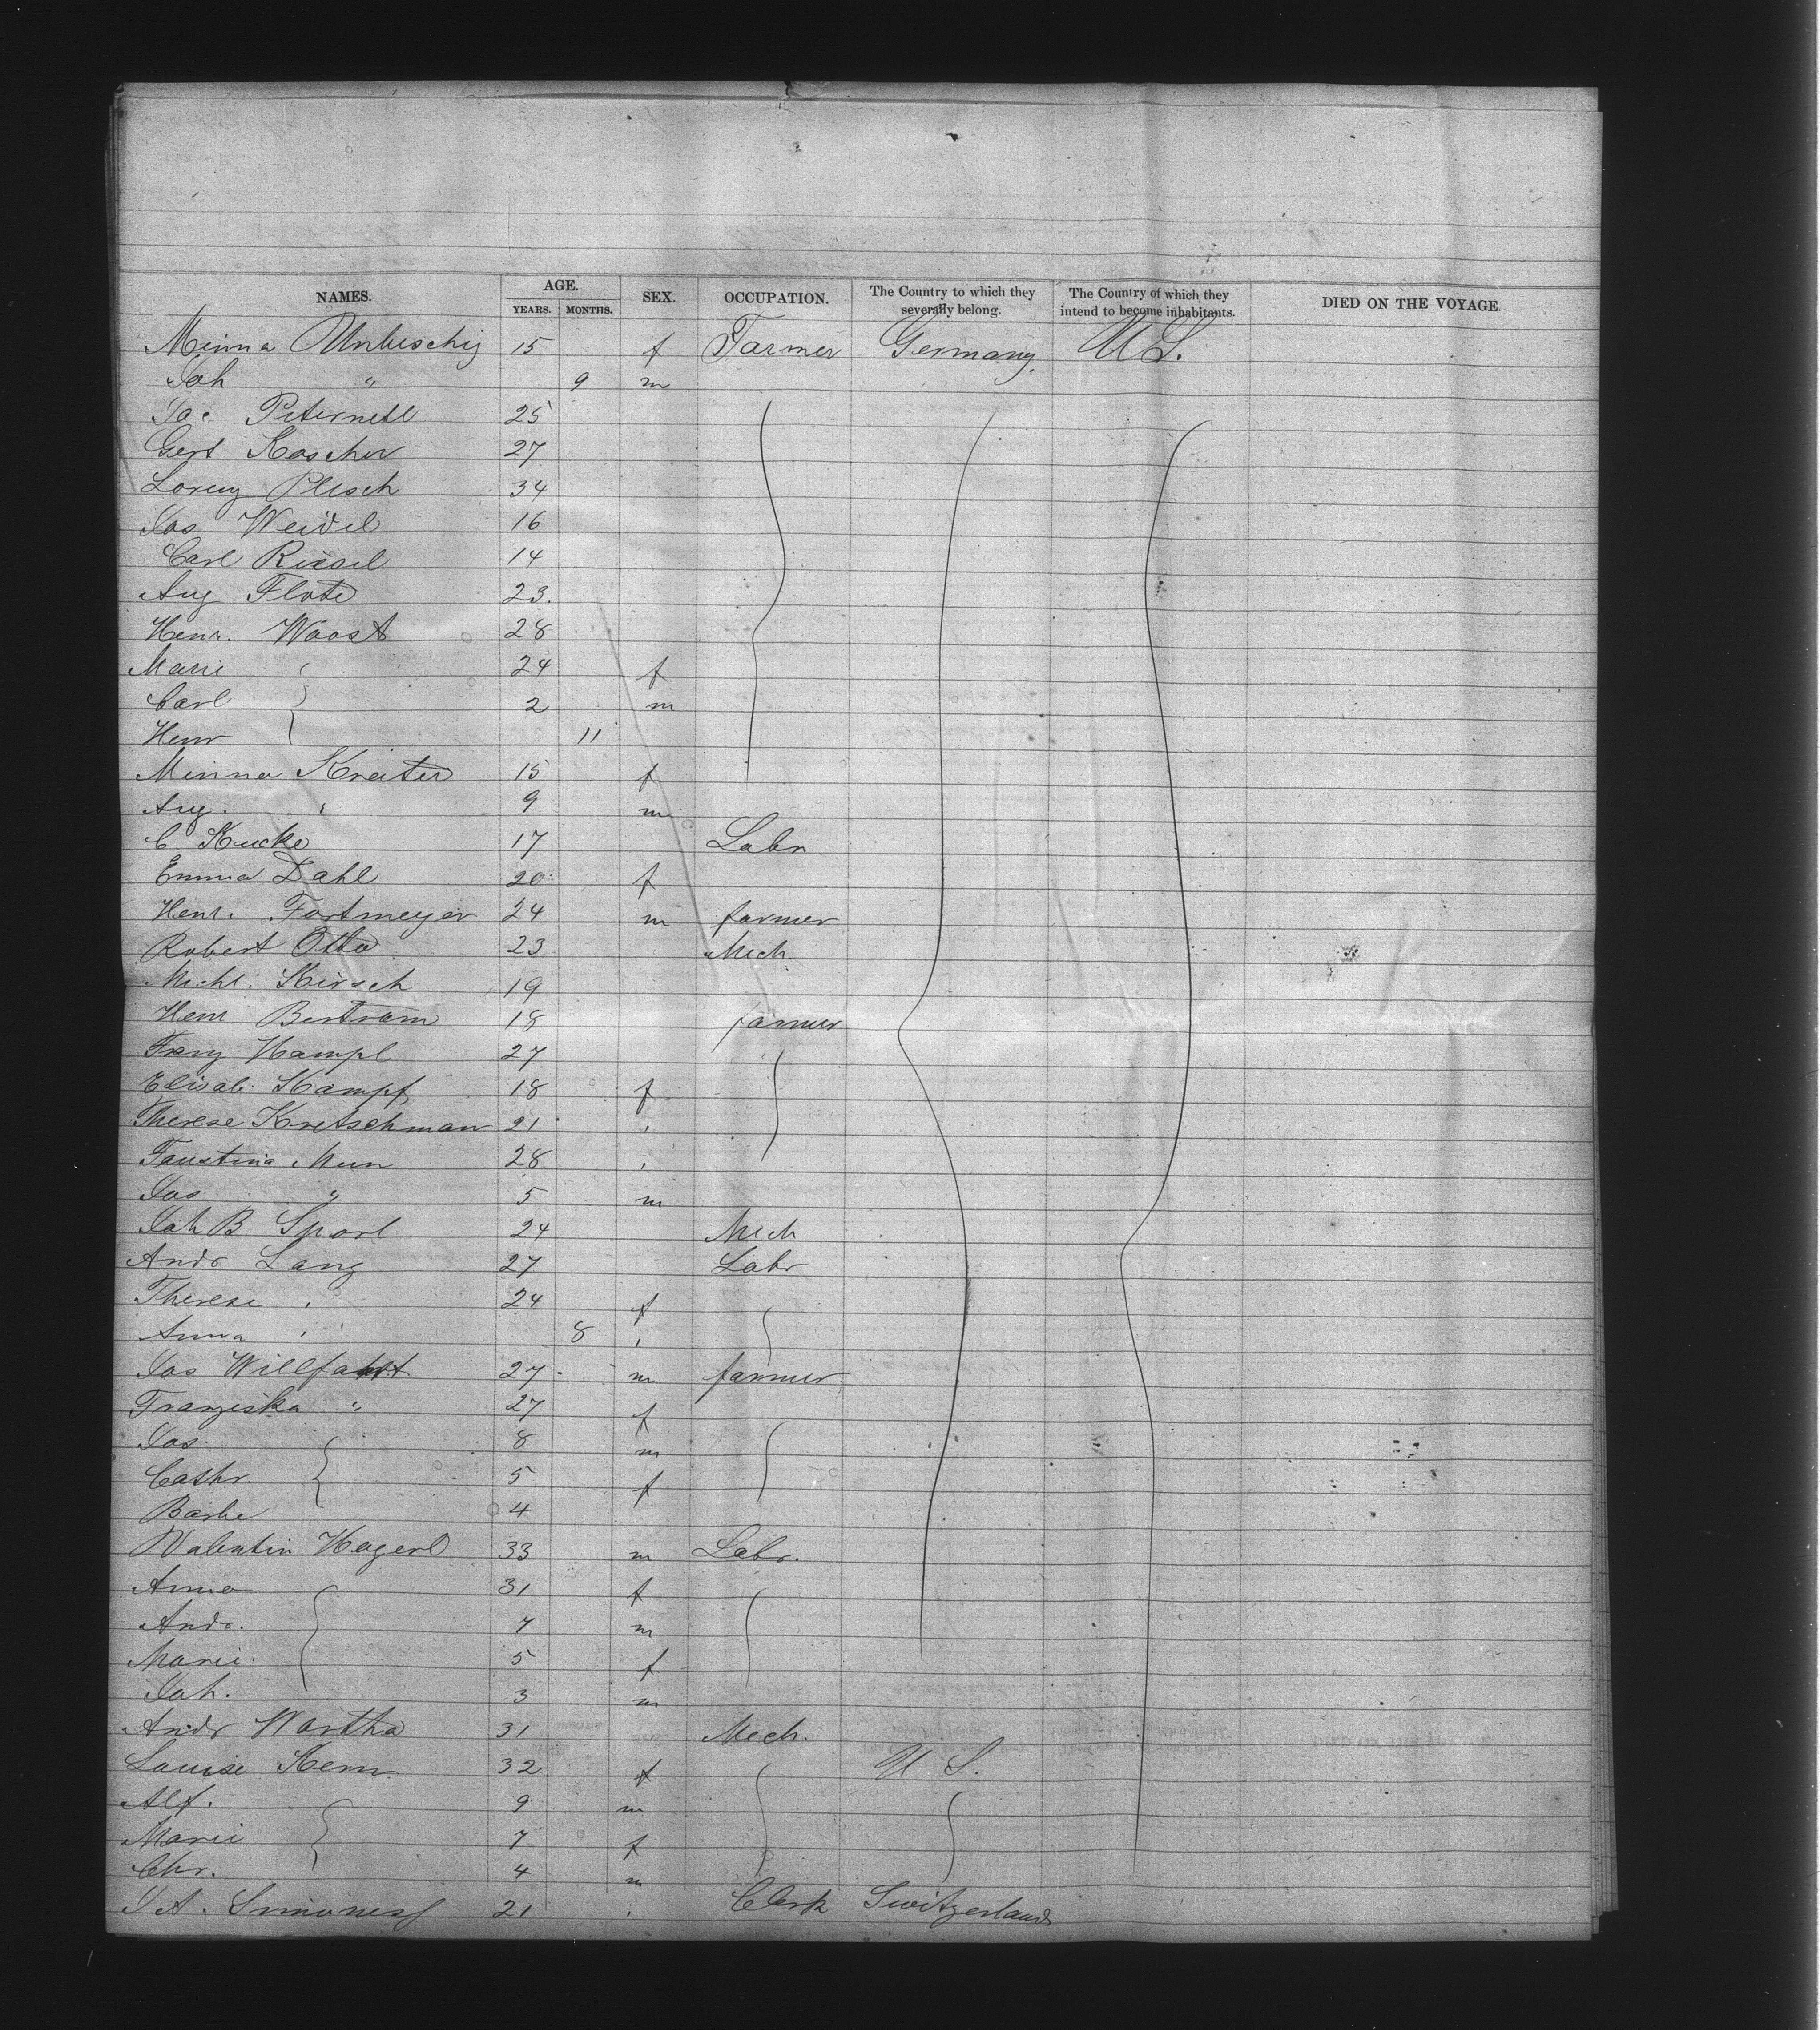 NAMES. AGE. YEARS. MONTHS. SEX. OCCUPATION. The Country to which they severally belong. The Country of which they intend to become inhabitants. DIED ON THE VOYAGE.
Minna 15 f Farmer Germany U S.
Joh " 9 m
Jac Peternell 25
Gert Koscher 27
Lorenz Plesch 34
Jos Weidel 16
Carl Riesel 14
Aug Flote 23.
Henr. Woost 28
Marie 24 f
Carl 2 m
Henr 11
Minna Kreiter 15 f
Aug. " 9 m
C Kucke 17 Labr
Emma Dahl 20 f
Henr. Fortmeyer 24 m farmer
Robert Otto 23 Mech.
Michl. Kirsch 19
Henr Bertram 18 farmer
Franz Hampl 27
Elisab. Kampf 18 f
Therese Kretschman 21 "
Faustina Mun 28 "
Jos " 5 m
Joh B Sporl 24 Mech
Andr Lang 27 Labr
Therese " 24 f
Anna " 8 "
Jos Willfahrt 27 m farmer
Franziska " 27 f
Jos. 8 m
Cathr. 5 f
Barbe 4
Valentin Hagerl 33 m Labr.
Anna 31 f
Andr. 7 m
Marie 5 f
Joh. 3 m
Andr Wartha 31 Mech.
Louise Kern 32 f U S.
Alf. 9 m
Marie 7 f
Chr. 4 m
J A. 21 " Clerk Switzerland